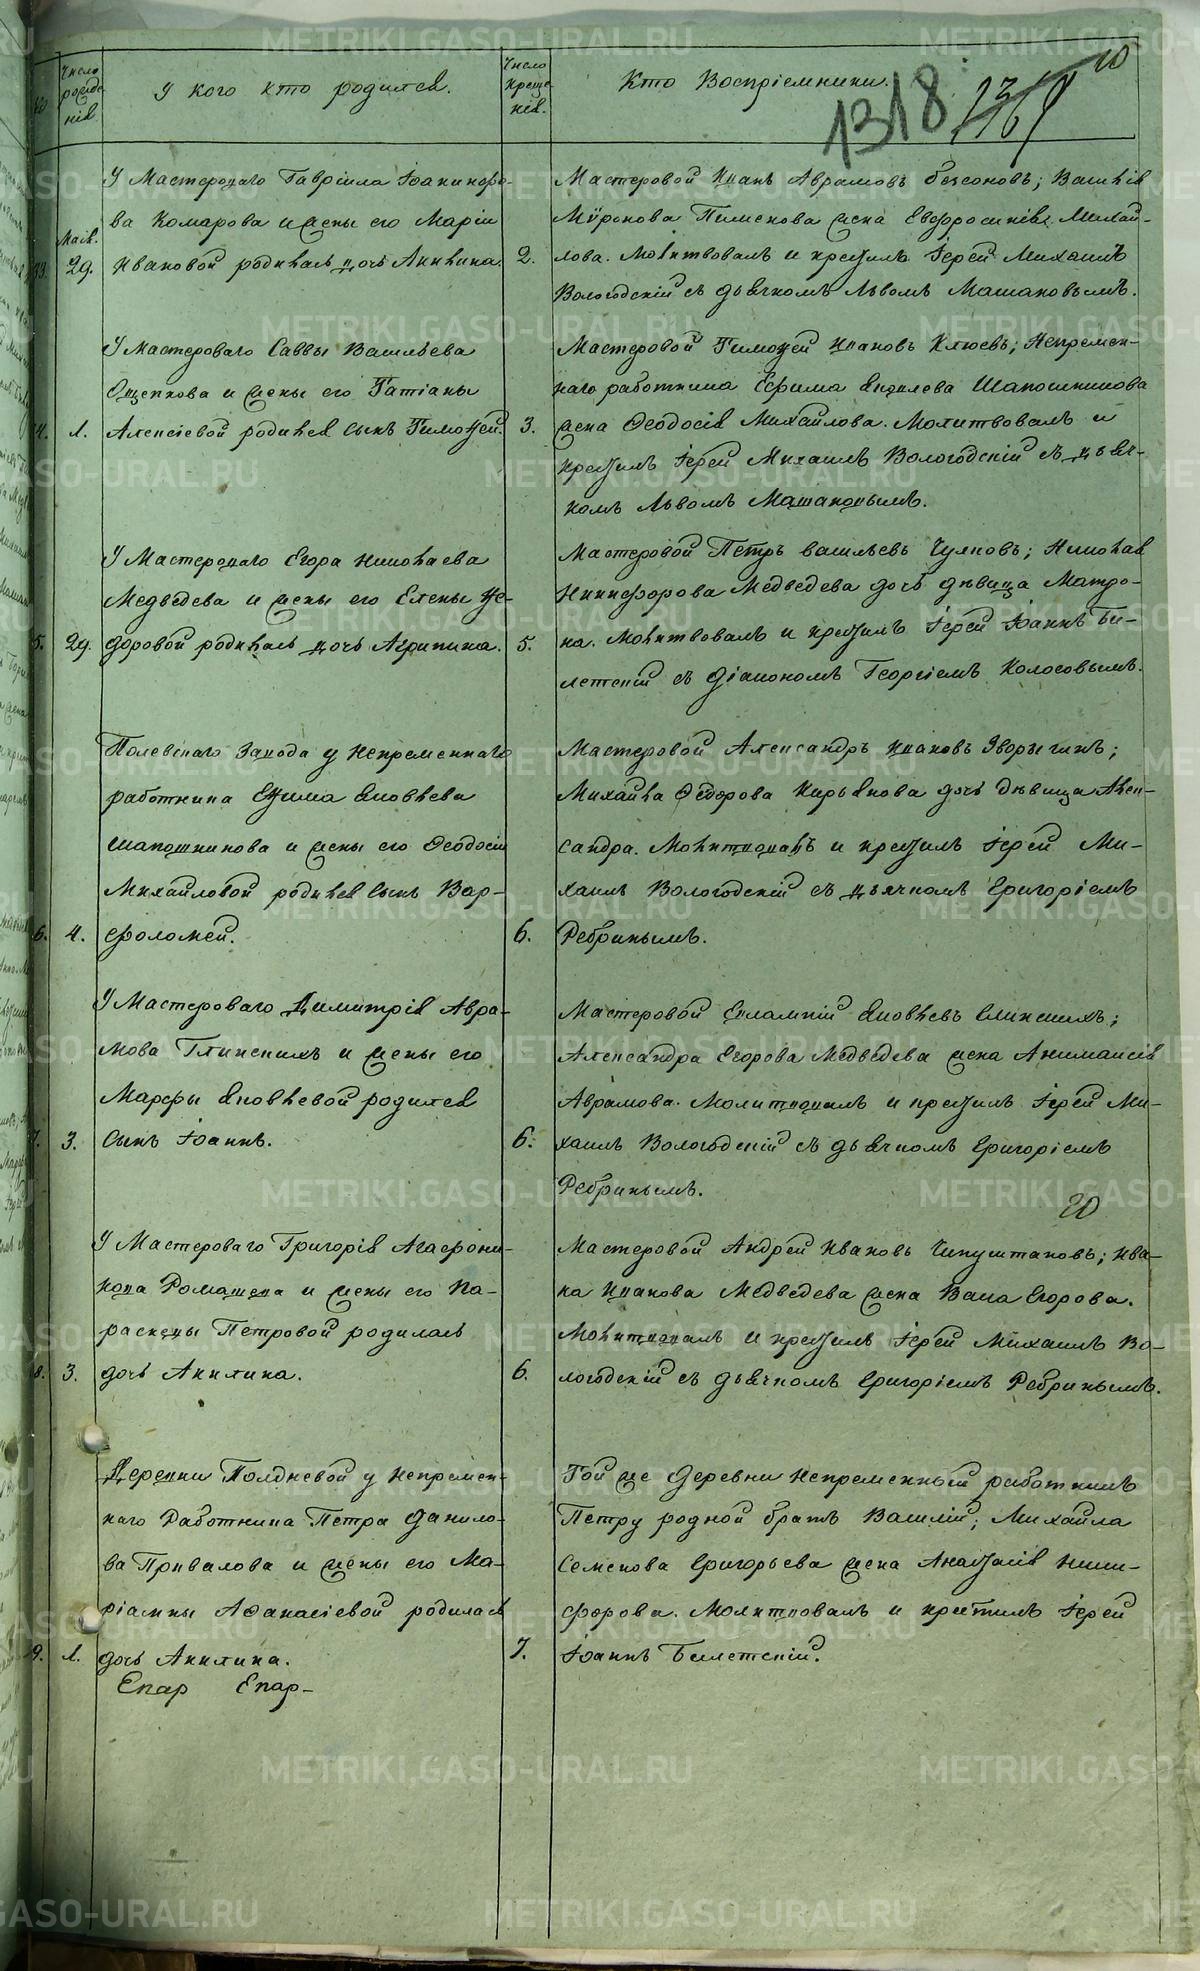 Число рожде нія.
У кого кто родился.
Число креще нія.
Кто Воспріемники.
10
1318
У Мастероваго Гавріила Іоаникіфо-
ва Комарова и жены его Маріи
Маія.
29. Ивановой родилась дочь Акилина.
2.
Мастеровой Иванъ Аврамовъ безсоновъ; Василія
Муронова Пименова жена Евфросинія Михай-
лова. Молитвовалъ и крестилъ Іерей Михаилъ
Вологодскій съ дьячкомъ Львомъ Машановымъ.
У Мастероваго Саввы Васильева
Ощепкова и жены его Татіаны
4. 1. Алексіевой родился сынъ Тимофей.
3.
Мастеровой Тимофей Ивановъ Клюевъ; Непремен-
наго работника Ефима Яковлева Шапошникова
жена Ѳеодосія Михайлова. Молитвовалъ и
крестилъ Іерей Михаилъ Вологодскій съ дьяч-
комъ Львомъ Машановымъ.
У Мастероваго Егора Николаева
Медведева и жены его Елены Ѳе-
5. 29. доровой родилась дочь Агрипина.
5.
Мастеровой Петръ васильевъ Чулковъ; Николая
Никифорова Медведева дочь девица Матро-
на. Молитвовалъ и крестилъ Іерей Іоаннъ Би-
летскій съ діакономъ Георгіемъ Колосовымъ.
Полевскаго Завода у Непременнаго
работника Ефима Яковлева
Шапошникова и жены его Ѳеодосіи
Михайловой родился сынъ Вар-
6. 4. фоломей.
6.
Мастеровой Александръ Ивановъ Зворыгинъ;
Михайла Ѳедорова Кирьянова дочь девица Алек-
сандра. Молитвовалъ и крестилъ Іерей Ми-
хаилъ Вологодскій съ дьячкомъ Григоріемъ
Ребринымъ.
У Мастероваго Димитрія Авра-
мова Глинскихъ и жены его
Марфы Яковлевой родился
7. 3. сынъ Іоаннъ.
6.
Мастеровой Евлампій Яковлевъ Глинскихъ;
Александра Егорова Медведева жена Анимаисія
Аврамова. Молитвовалъ и крестилъ Іерей Ми-
хаилъ Вологодскій съ дьячкомъ Григоріемъ
Ребринымъ.
20
У Мастероваго Григорія Агафони-
кова Ромашева и жены его Па-
раскевы Петровой родилась
8. 3. дочь Акилина.
6.
Мастеровой Андрей Ивановъ Чипуштановъ; Ива-
на Иванова Медведева жена Васса Егорова.
Молитвовалъ и крестилъ Іерей Михаилъ Во-
логодскій съ дьячкомъ Григоріемъ Ребринымъ.
Деревни Полдневой у Непремен-
наго Работника Петра Данило-
ва Привалова и жены его Ма-
ріамны Аѳанасіевой родилась
9. 1. дочь Акилина.
7.
Епар Епар-
Той же деревни Непременный работникъ
Петру родной братъ Василій; Михайла
Семенова Григорьева жена Анастасія Ники-
форова. Молитвовалъ и крестилъ Іерей
Іоаннъ Билетскій.
METRIKI.GASO-URAL.RU